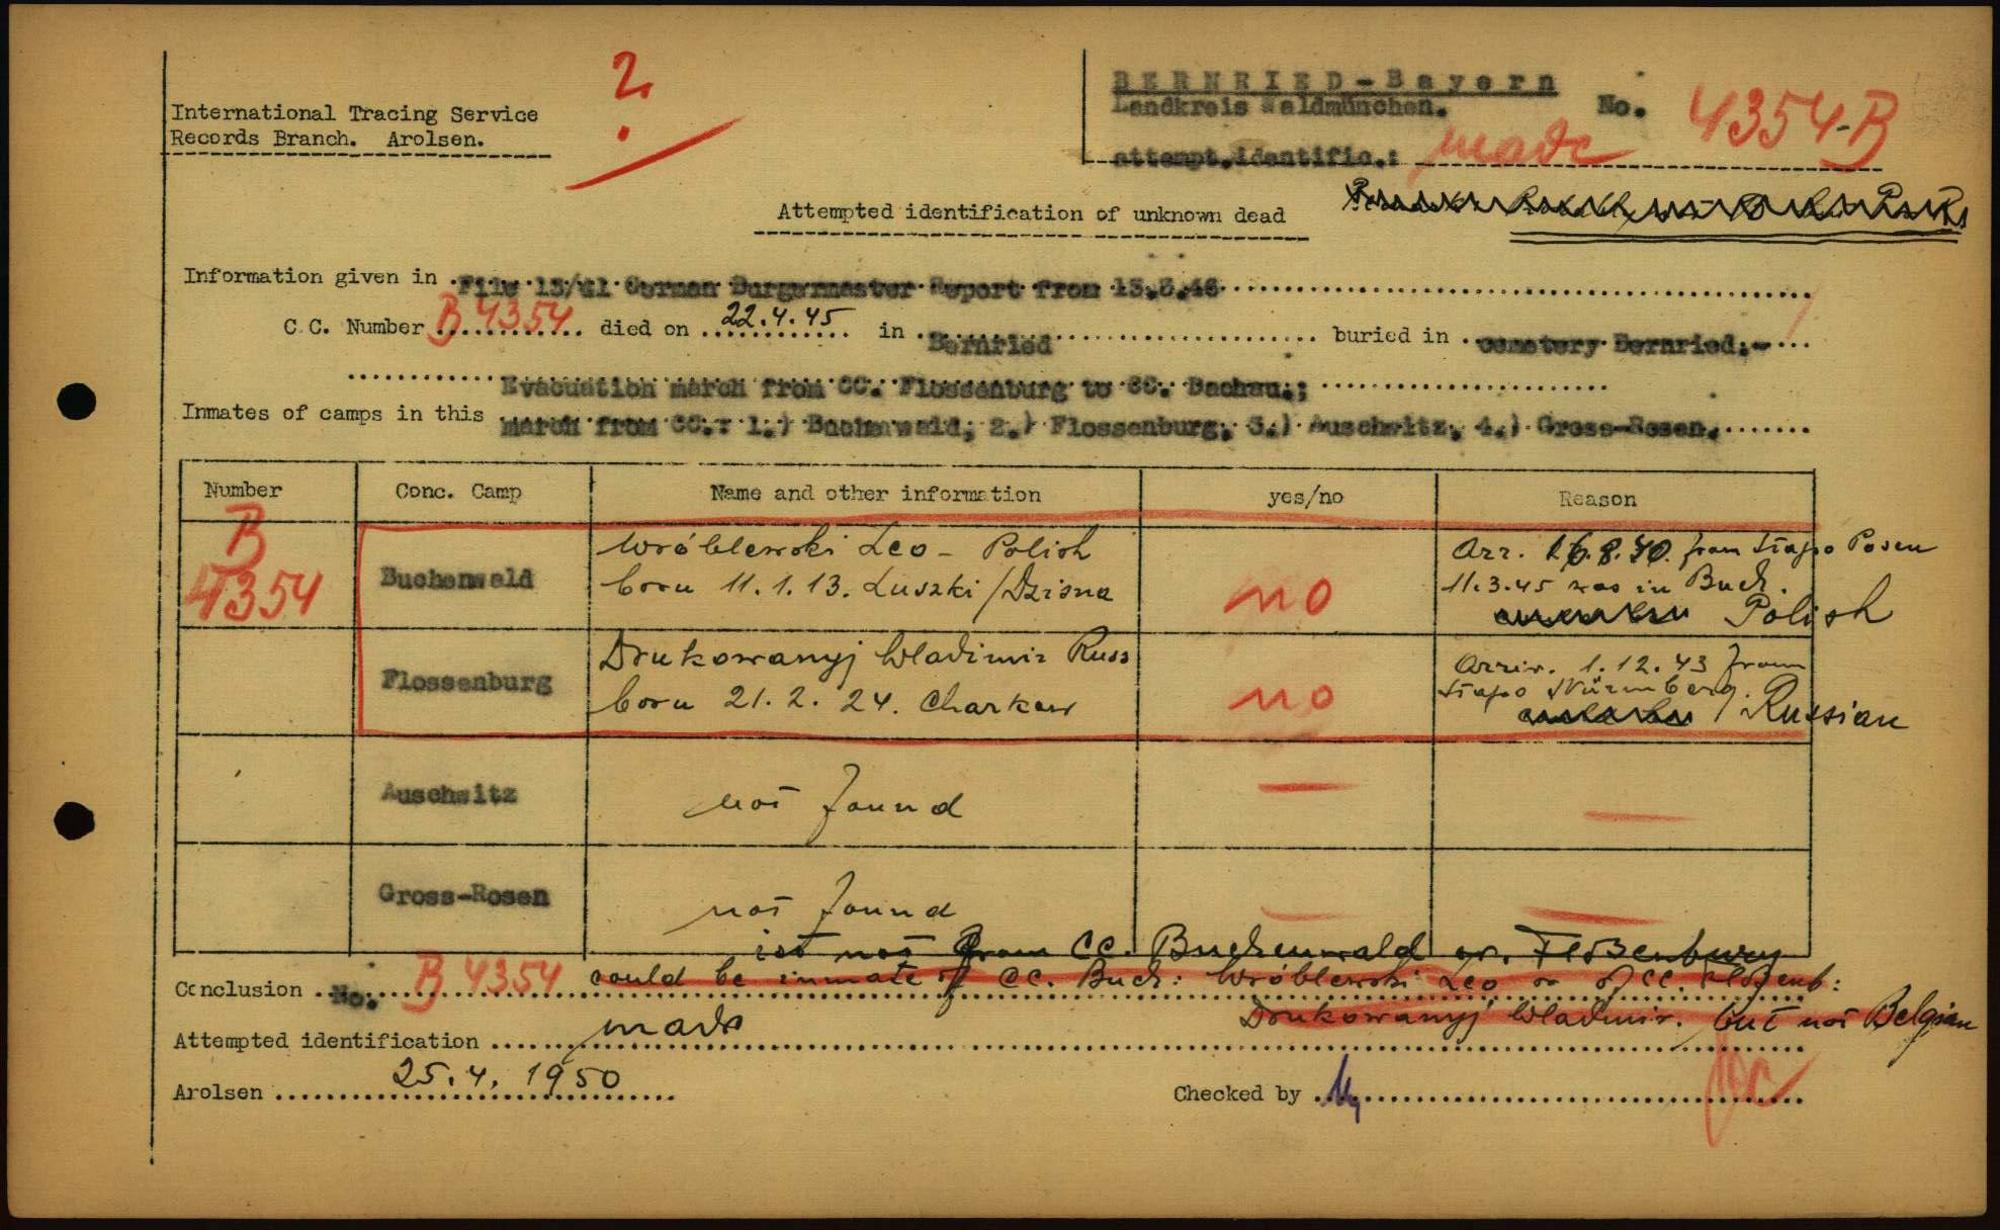 ?
International Tracing Service
Records Branch. Arolsen.
BERNRIED-Bayern
Landkreis Waldmünchen. No. 4354-B
attempt.identific.: made
Attempted identification of unknown dead
Information given in File 13/41 German Burgermaster Report from 13.3.46
C.C. Number B 4354 died on 22.4.45 in Bernried buried in cemetery Bernried.-
Evacuation march from CC. Flossenburg to CC. Dachau.;
Inmates of camps in this march from CC.: 1.) Buchenwald, 2.) Flossenburg, 3.) Auschwitz, 4.) Gross-Rosen.
Number Conc. Camp Name and other information yes/no Reason
B 4354
Buchenwald
Wróblewski Leo - Polish
born 11.1.13. Luszki /Dzisna
no
Arr. 16.8.40. from Stapo Posen
11.3.45 was in Buch.
Polish
Flossenburg
Drukowanyj Wladimir Russ
born 21.2.24. Charkow
no
Arriv. 1.12.43 from
Stapo Nürnberg.
Russian
Auschwitz not found
Gross-Rosen not found
ist not from CC. Buchenwald or. Floßenburg
Conclusion No. B 4354 could be inmate of CC. Buch: Wróblewski Leo or of CC. Floßenb:
Drukowanyj Wladimir. but not Belgian
Attempted identification made
Arolsen 25.4.1950 Checked by